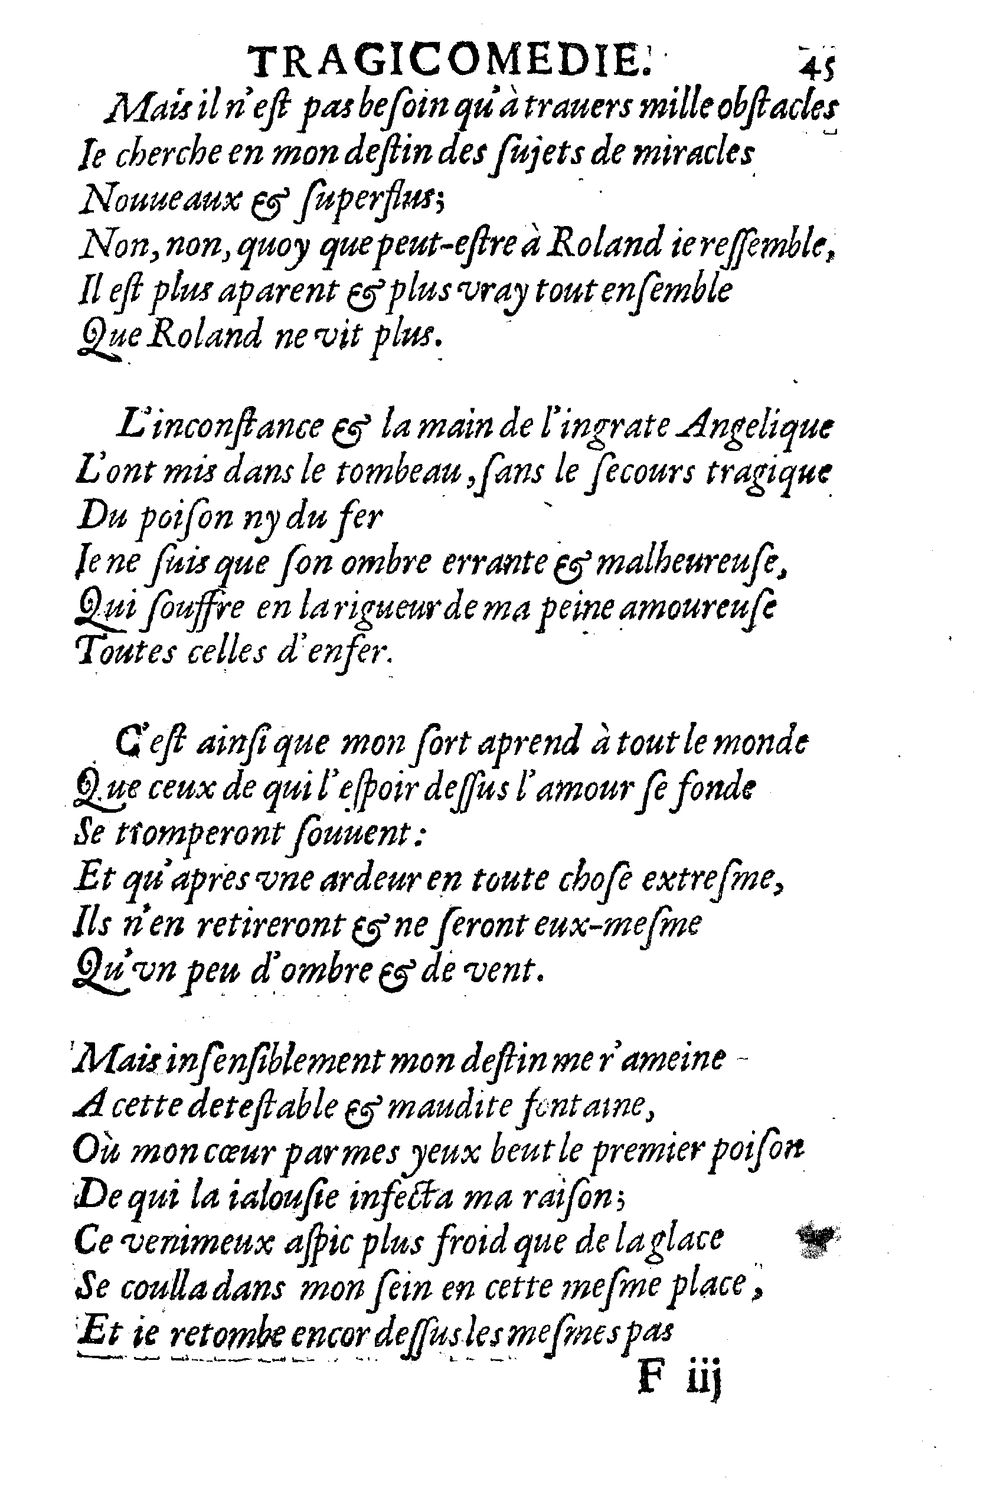 TRAGICOMEDIE. 45
Mais il n'eſt pas beſoin qu'à trauers mille obſtacles
Ie cherche en mon deſtin des ſujets de miracles
Nouueaux & ſuperflus;
Non, non, quoy que peut-eſtre à Roland ie reſſemble,
Il eſt plus aparent & plus vray tout enſemble
Que Roland ne vit plus.
L'inconſtance & la main de l'ingrate Angelique
L'ont mis dans le tombeau, ſans le ſecours tragique
Du poiſon ny du fer
Ie ne ſuis que ſon ombre errante & malheureuſe,
Qui ſouffre en la rigueur de ma peine amoureuſe
Toutes celles d'enfer.
C'eſt ainſi que mon ſort aprend à tout le monde
Que ceux de qui l'eſpoir deſſus l'amour ſe fonde
Se tromperont ſouuent:
Et qu'apres vne ardeur en toute choſe extreſme,
Ils n'en retireront & ne ſeront eux-meſme
Qu'vn peu d'ombre & de vent.
Mais inſenſiblement mon deſtin me r'ameine
A cette deteſtable & maudite fontaine,
Où mon cœur par mes yeux beut le premier poiſon
De qui la ialouſie infecta ma raiſon;
Ce venimeux aſpic plus froid que de la glace
Se coulla dans mon ſein en cette meſme place,
Et ie retombe encor deſſus les meſmes pas
F iij